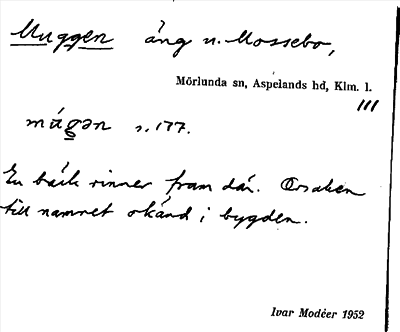 Muggen äng u. Mossebo,
Mörlunda sn, Aspelands hd, Klm. l.
111
s. 177.
En bäck rinner fram där. Orsaken
till namnet okänd i bygden.
Ivar Modéer 1952